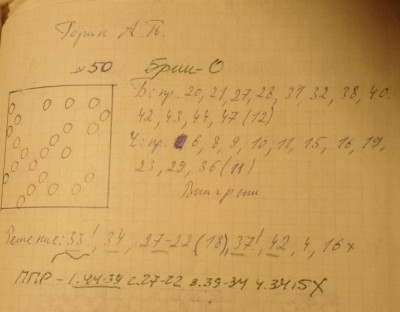 Горин А.В.
№ 50 Брин-О
Б: пр. 20, 21, 27, 28, 31, 32, 38, 40,
42, 43, 44, 47 (12)
Ч: пр. 6, 8, 9, 10, 11, 15, 16, 19,
23, 29, 36 (11)
Выигрыш
Решение: 33!, 34, 27-22 (18), 37!, 42, 4, 16x
ППР - 1.44-39 2.27-22 3.39-34 4.34:5X